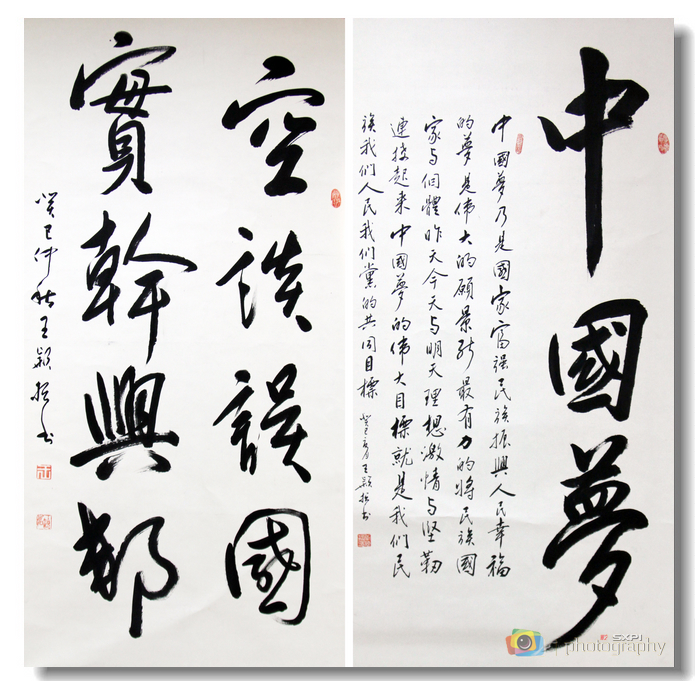 空談誤國
實幹興邦
癸巳仲秋王颖振书
中國夢
中國夢乃是國家富强民族振興人民幸福
的夢是伟大的願景能最有力的将民族國
家与個體昨天今天与明天理想激情与坚勤
連接起来中國夢的伟大目標就是我们民
族我们人民我们黨的共同目標
SXPI
photography